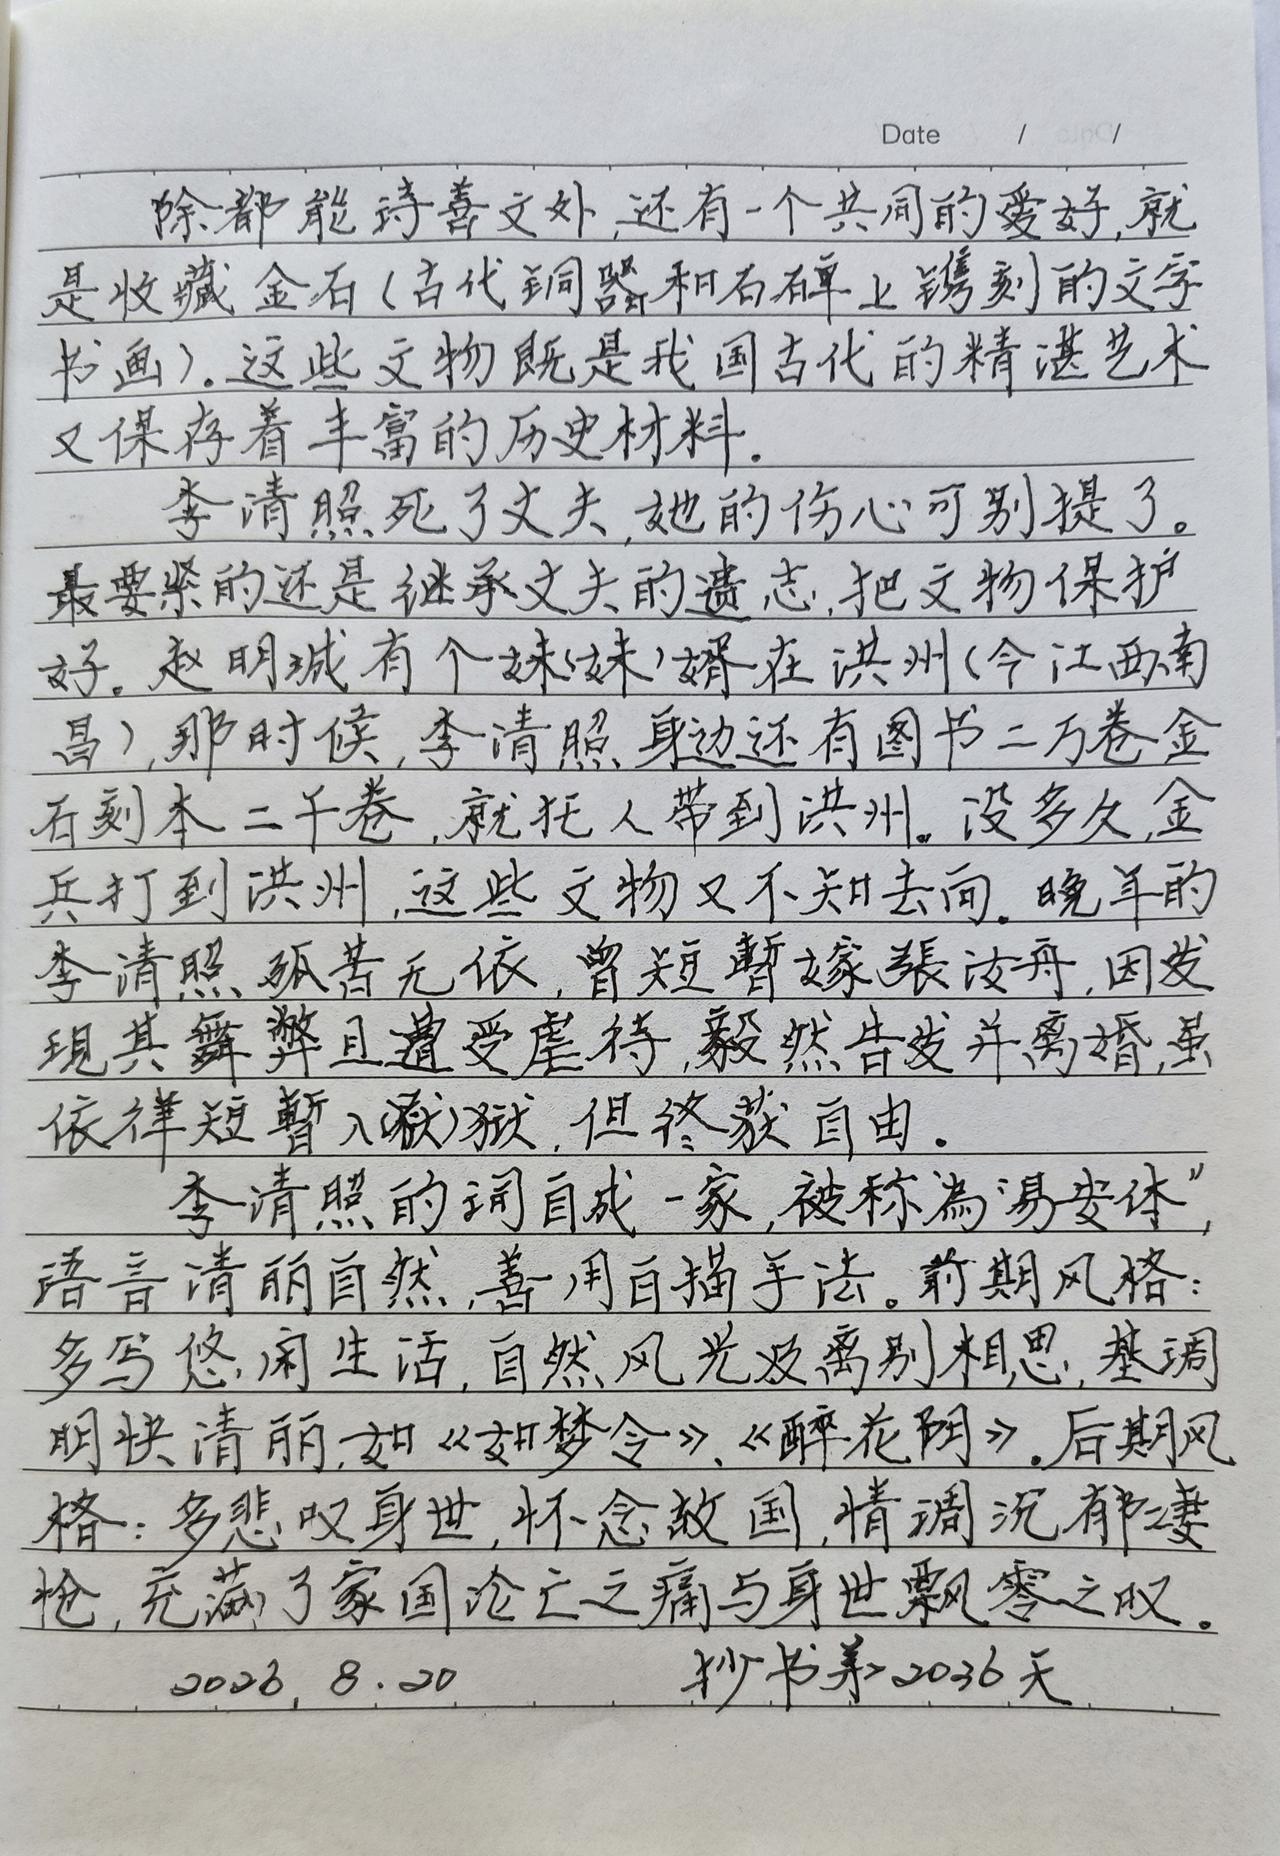 Date / /
除都能诗善文外,还有一个共同的爱好,就
是收藏金石(古代铜器和石碑上镌刻的文字
书画)。这些文物既是我国古代的精湛艺术
又保存着丰富的历史材料.
李清照死了丈夫,她的伤心可别提了。
最要紧的还是继承丈夫的遗志,把文物保护
好。赵明诚有个妹(妹)婿在洪州(今江西南
昌),那时候,李清照身边还有图书二万卷金
石刻本二千卷,就托人带到洪州。没多久,金
兵打到洪州,这些文物又不知去向.晚年的
李清照孤苦无依,曾短暫嫁張汝舟,因发
現其舞弊且遭受虐待,毅然告发并离婚,虽
依律短暫入(獄)狱,但终获自由.
李清照的词自成一家,被称為“易安体”,
语言清丽自然,善用白描手法。前期风格:
多写悠闲生活,自然风光及离别相思,基调
明快清丽,如《如梦令》、《醉花阴》.后期风
格:多悲叹身世,怀念故国,情调沉郁凄
怆,充满了家国沦亡之痛与身世飘零之叹。
2026.8.20 抄书第2036天